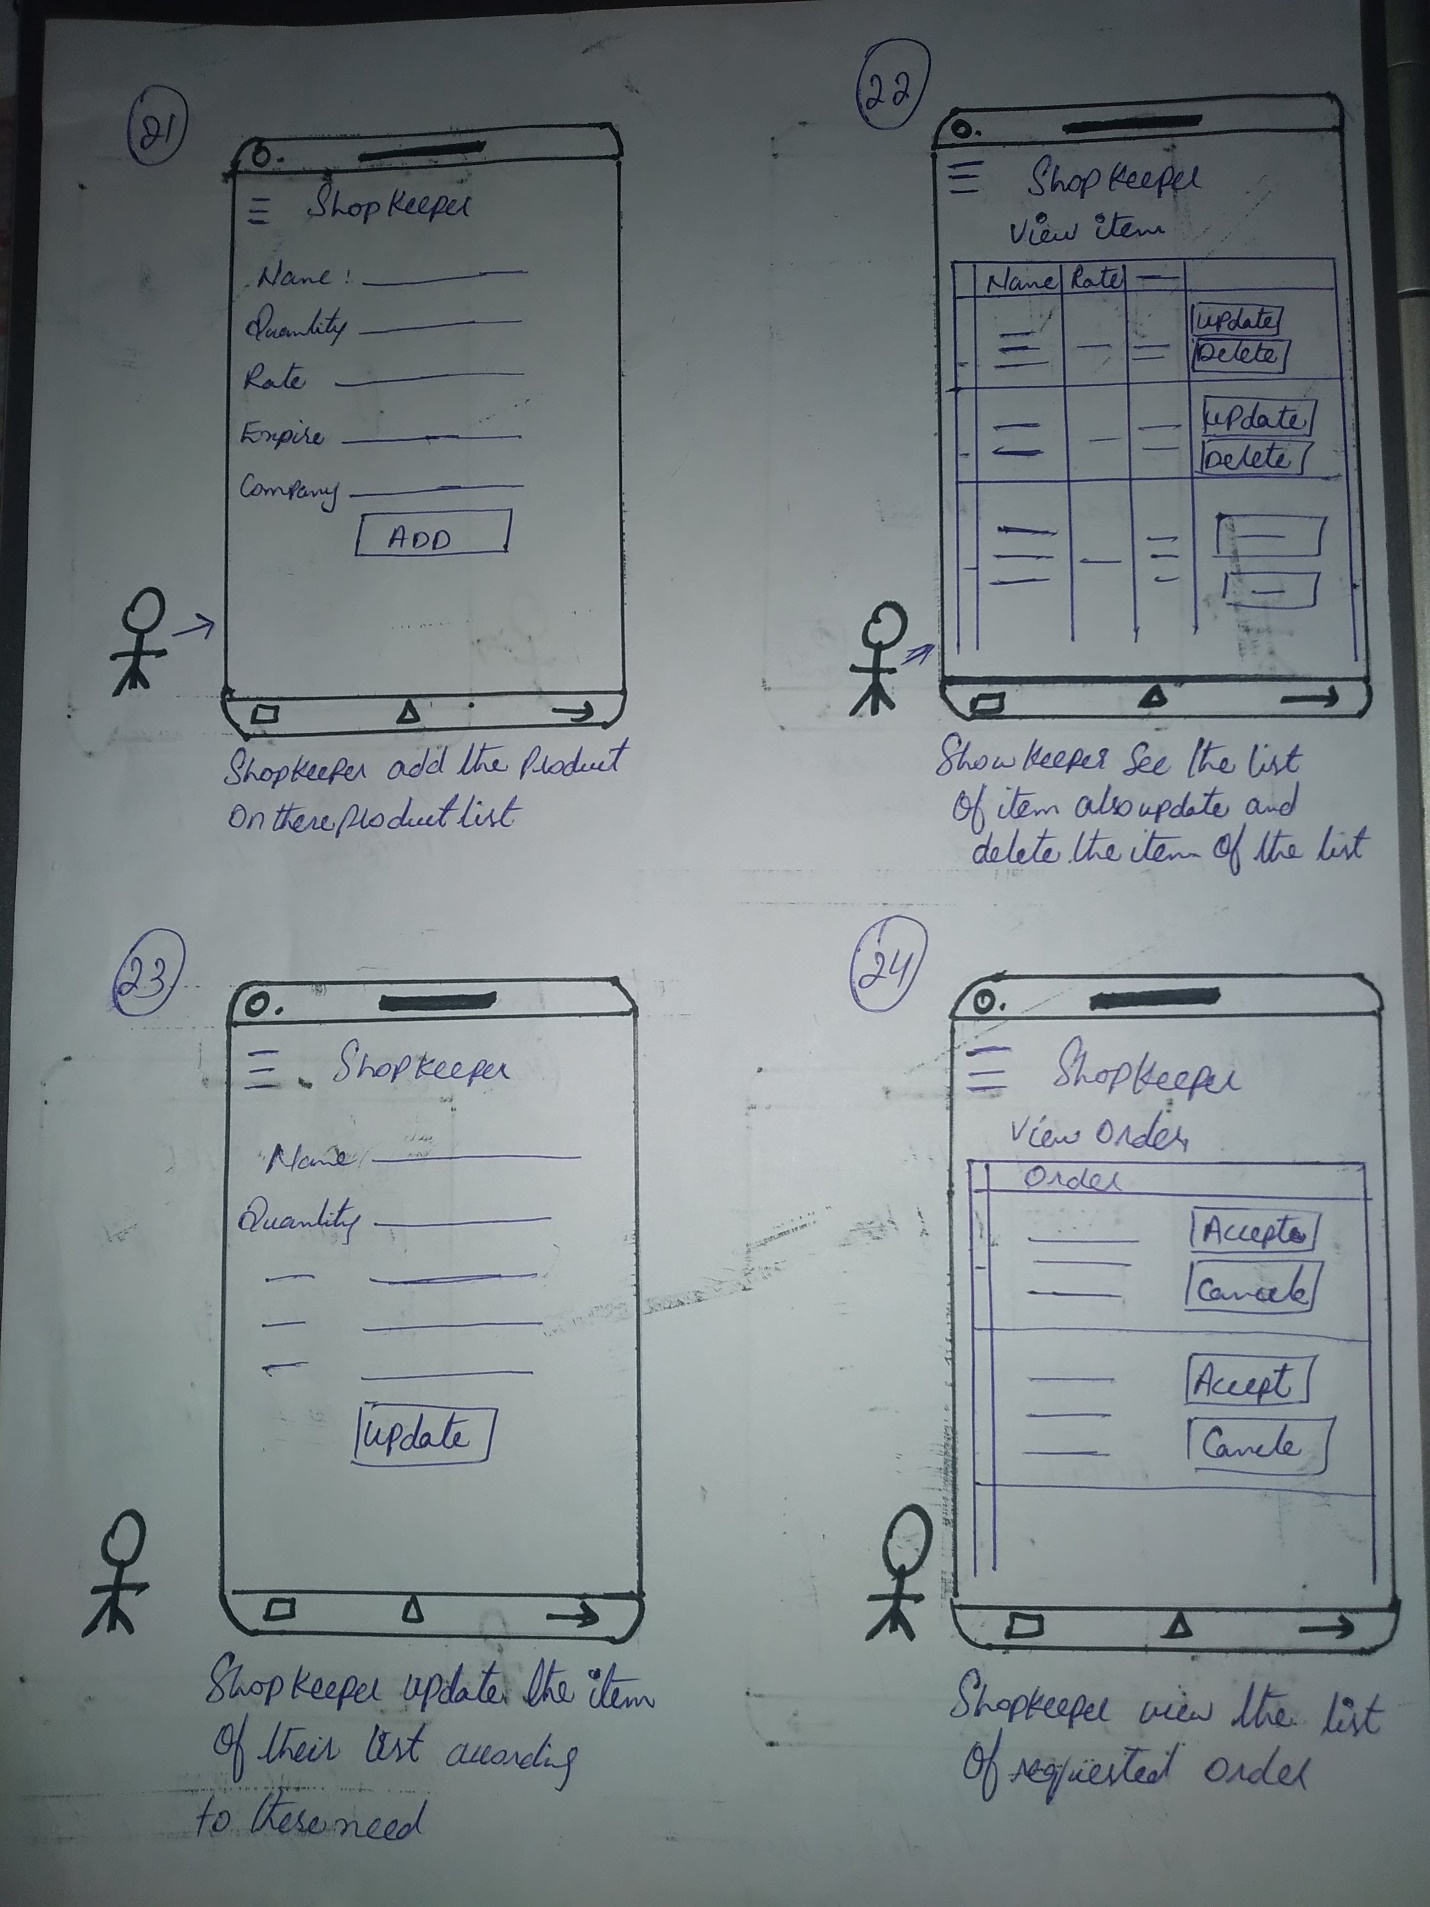 21
Shopkeeper
Name :
Quantity
Rate
Expire
Company
ADD
Shopkeeper add the Product
On there Product list
22
Shopkeeper
View item
Name Rate
Update
Delete
Update
Delete
Showkeeper See the list
Of item also update and
delete the item Of the list
23
Shopkeeper
Name
Quantity
Update
Shopkeeper update the item
Of their list according
to these need
24
Shopkeeper
View Order
Order
Accept
Cancele
Accept
Cancle
Shopkeeper view the list
Of requested Order